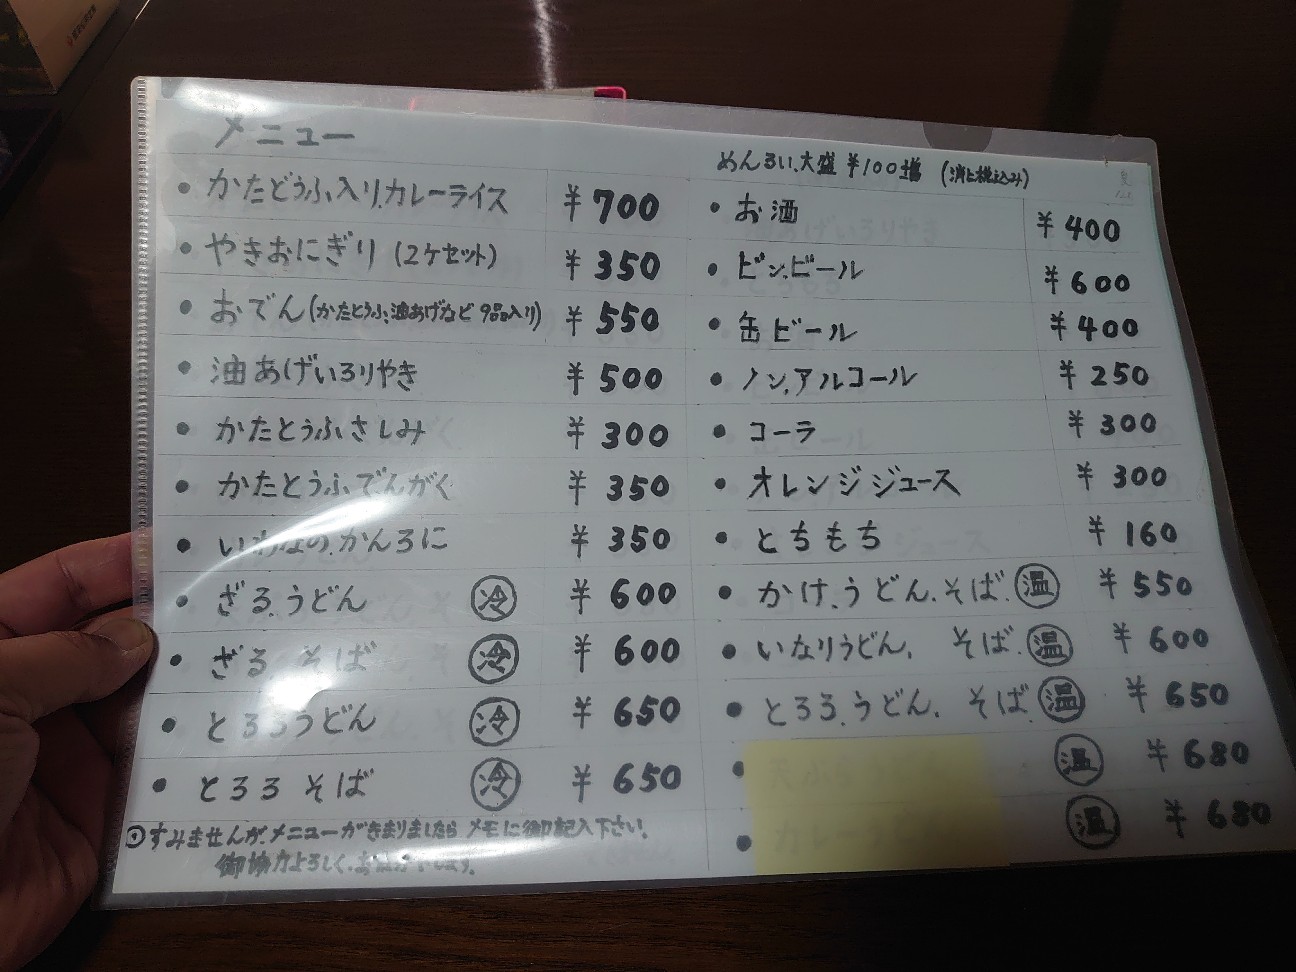 メニュー
めんるい、大盛 ¥100増 (消ヒ税込み)
・かたどうふ入りカレーライス ¥700
・やきおにぎり (2ケセット) ¥350
・おでん(かたとうふ、油あげなど 9品入り) ¥550
・油あげいろりやき ¥500
・かたとうふさしみ ¥300
・かたとうふでんがく ¥350
・いわなのかんろに ¥350
・ざるうどん 冷 ¥600
・ざるそば 冷 ¥600
・とろろうどん 冷 ¥650
・とろろそば 冷 ¥650
すみませんが、メニューがきまりましたら メモに御記入下さい。
御協力よろしく、お願い します。
・お酒 ¥400
・ビン、ビール ¥600
・缶ビール ¥400
・ノン、アルコール ¥250
・コーラ ¥300
・オレンジジュース ¥300
・とちもち ¥160
・かけ、うどん、そば、温 ¥550
・いなりうどん、そば、温 ¥600
・とろろ、うどん、そば 温 ¥650
・温 ¥680
・カレー 温 ¥680